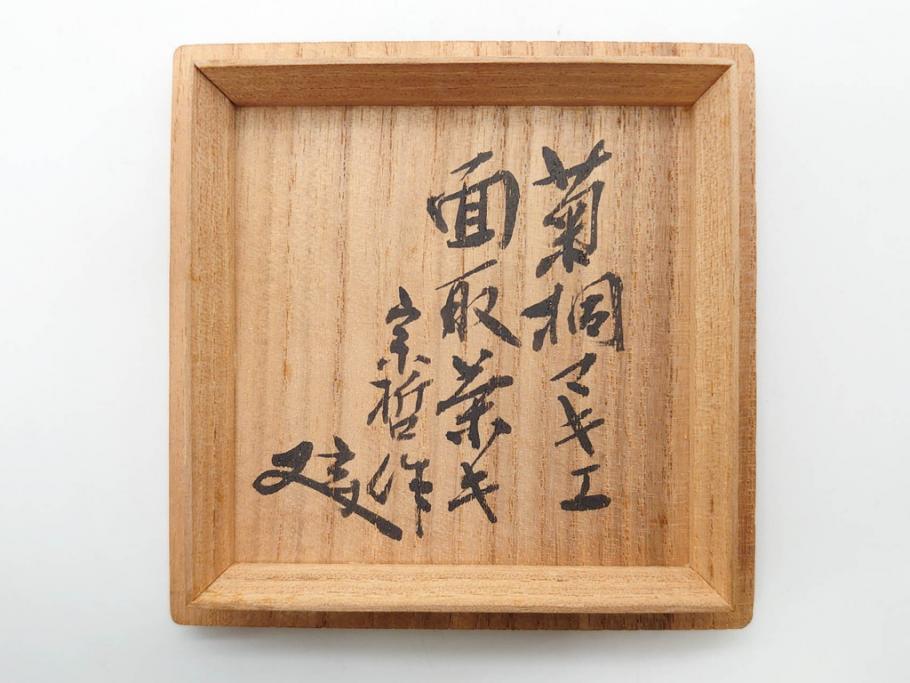 菊桐マキエ
面取茶キ
宗哲作